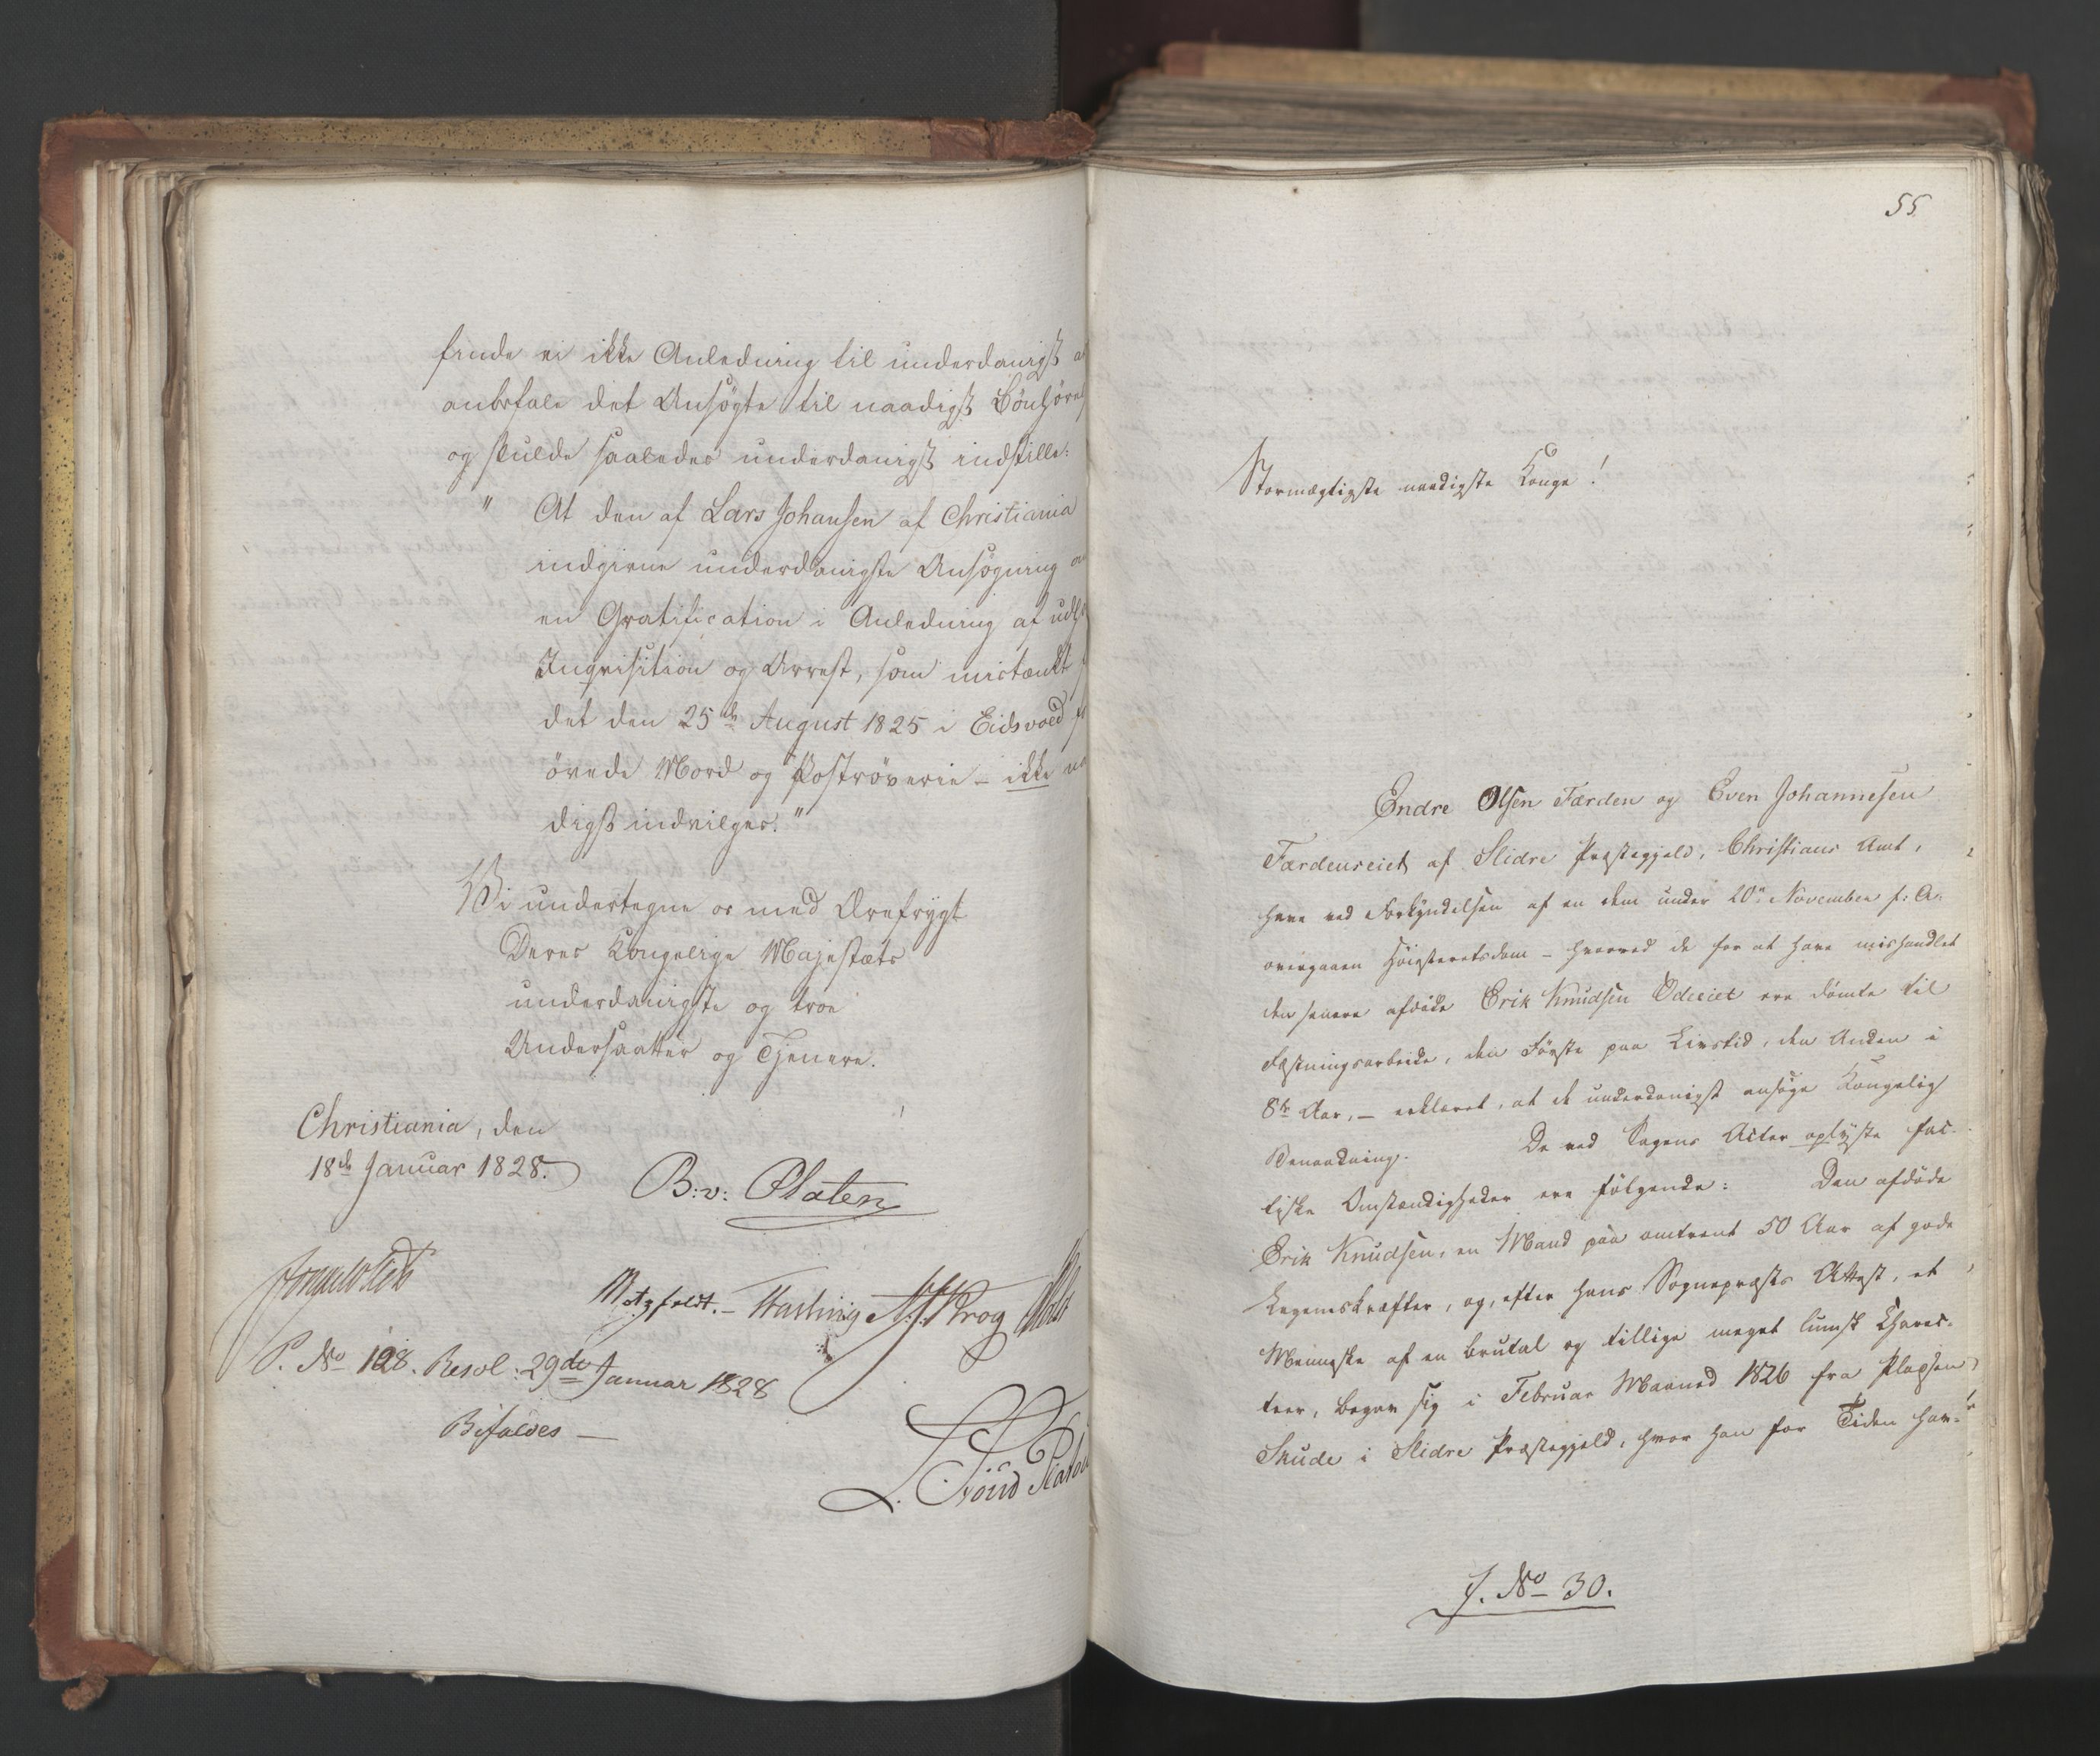 finde vi ikke Anledning til underdanigst a
anbefale det Ansøgte til naadigst Bønhørel
og skulde saaledes underdanigst indstille:
" At den af Lars Johansen af Christiania
indgivne underdanigste Ansøgning o
en Gratification i Anledning af udst
Inqvisition og Arrest, som mistænkt f
det den 25de August 1825 i Eidsvold f
øvede Mord og Postrøverie – ikke na
digst indvilges."
Vi undertegne os med Ærefrygt
Deres Kongelige Majestæts
underdanigste og troe
Undersaatter og Tjenere.
Christiania, den
18de Januar 1828.
B: v: Platen
Motzfeldt. – Krog
P. No 128. Resol: 29de Januar 1828
Bifaldes –
55
Stormægtigste naadigste Konge!
Endre Olsen Færden og Even Johannesen
Færdenseiet af Slidre Præstegjeld, Christians Amt,
have ved Forkyndelsen af en dem under 20de November f: A.
overgaaen Høiesteretsdom – hvorved de for at have mishandlet
den senere afdøde Erik Knudsen Ødeeiet ere dømte til
Fæstningsarbeide, den Første paa Livstid, den Anden i
8te Aar, – erklæret, at de underdanigst ansøge Kongelig
Benaadning. De ved Sagens Acter oplyste fac-
tiske Omstændigheder ere følgende: Den afdøde
Erik Knudsen, en Mand paa omtrent 50 Aar af gode
Legemskræfter, og, efter hans Sognepræsts Attest, et
Menneske af en brutal og tillige meget lumsk Charac-
teer, begav sig i Februar Maaned 1826 fra Pladsen
Skude i Slidre Præstegjeld, hvor han for Tiden hav-
J. No 30.